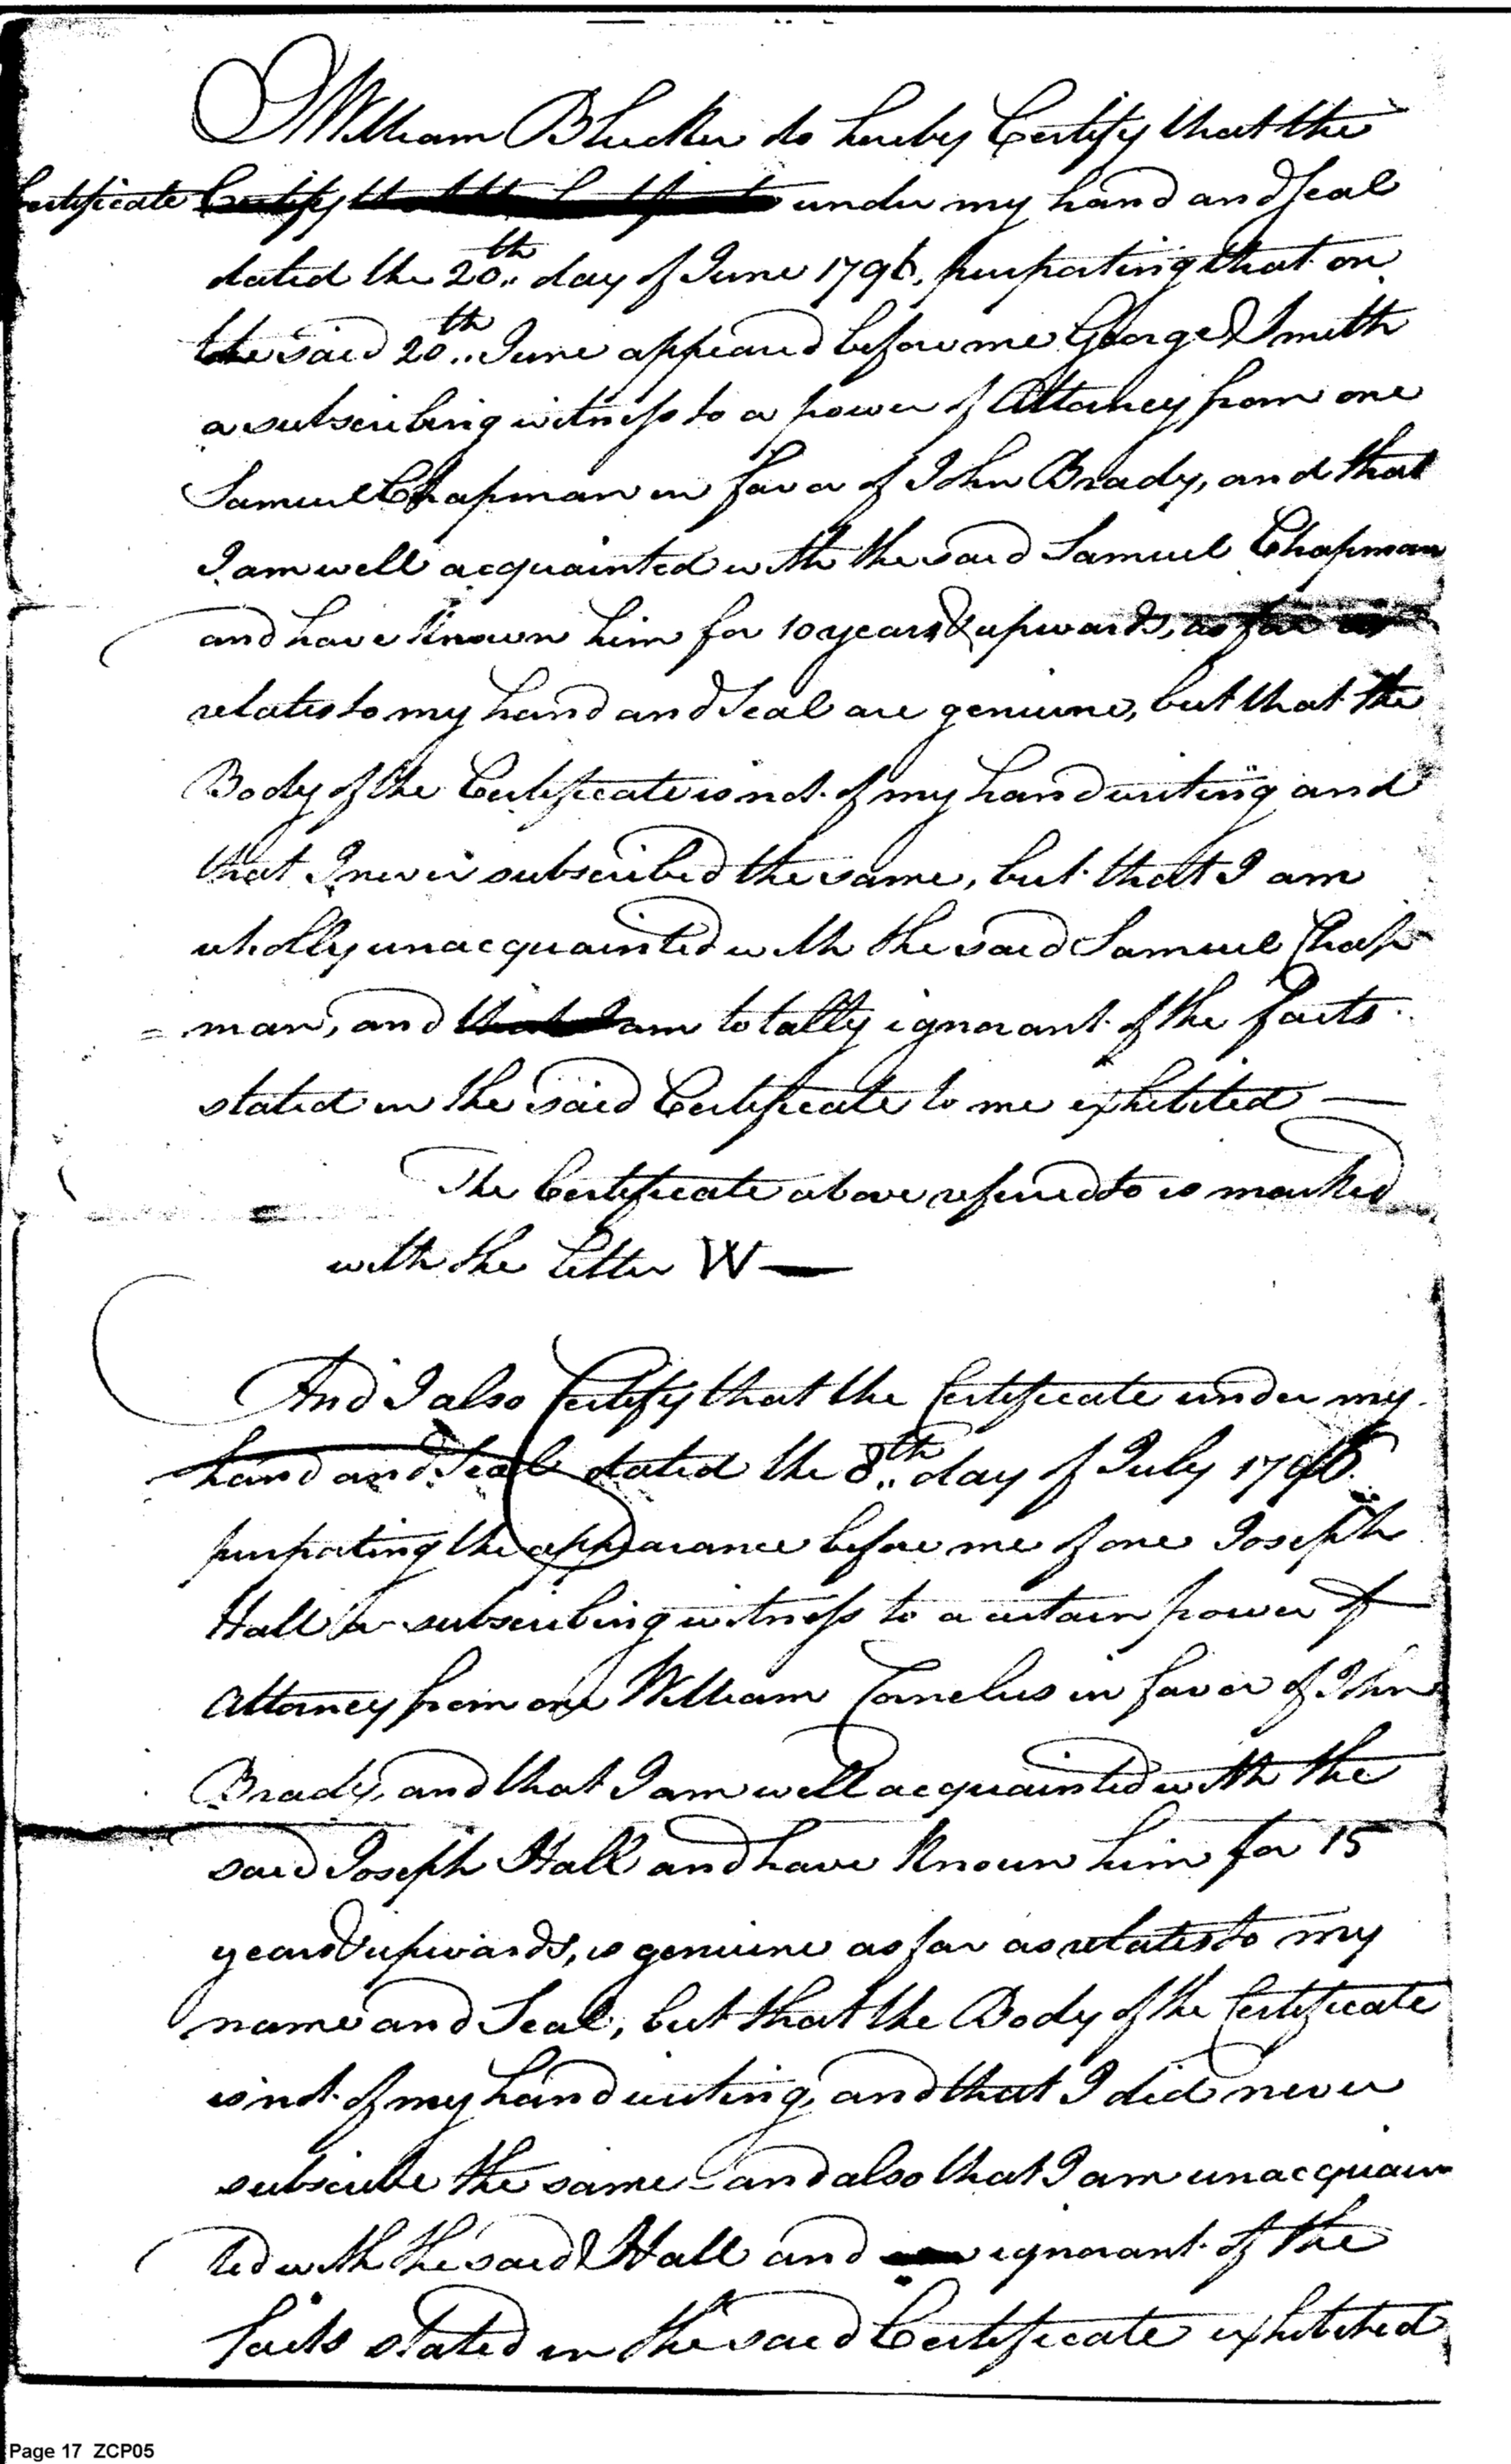 I William Blucker do hereby Certify that the
Certificate under my hand and Seal
dated the 20th day of June 1796, purporting that on
the said 20th June appeared before me George Smith
a subscribing witness to a power of Attorney from one
Samuel Chapman in favor of John Brady, and that
I am well acquainted with the said Samuel Chapman
and have Known him for 10 years & upwards, as far as
relates to my hand and Seal are genuine, but that the
Body of the Certificate is not of my hand writing and
that I never subscribed the same, but that I am
wholly unacquainted with the said Samuel Chap
= man, and am totally ignorant of the facts
stated in the said Certificate to me exhibited —
The Certificate above refered to is marked
with the letter W —
And I also Certify that the Certificate under my
hand and Seal dated the 8th day of July 1796
purporting the appearance before me of one Joseph
Hall a subscribing witness to a certain power of
Attorney from one William Cornelus in favor of John
Brady, and that I am well acquainted with the
said Joseph Hall and have Known him for 15
years & upwards, is genuine as far as relates to my
name and Seal, but that the Body of the Certificate
is not of my hand writing, and that I did never
subscribe the same - and also that I am unacquain
ted with the said Hall and ignorant of the
facts stated in the said Certificate exhibited
Page 17 ZCP05